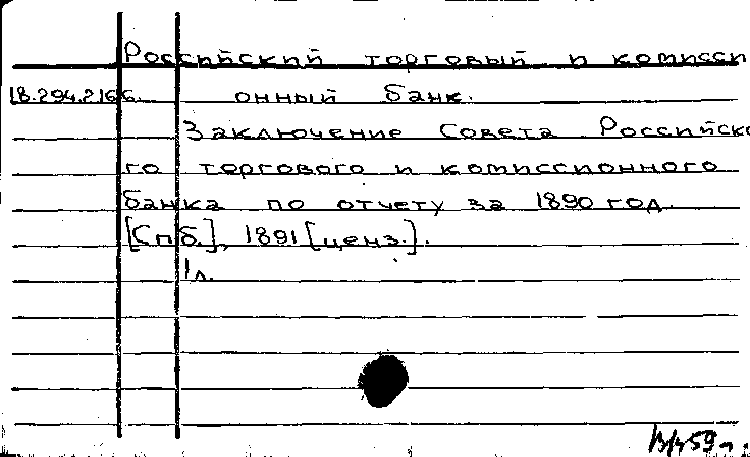 Российский торговый и комисси
18.294.2.166. онный банк.
Заключение Совета Российско
го торгового и комиссионного
банка по отчету за 1890 год.
[Спб.], 1891 [ценз.].
1 л.